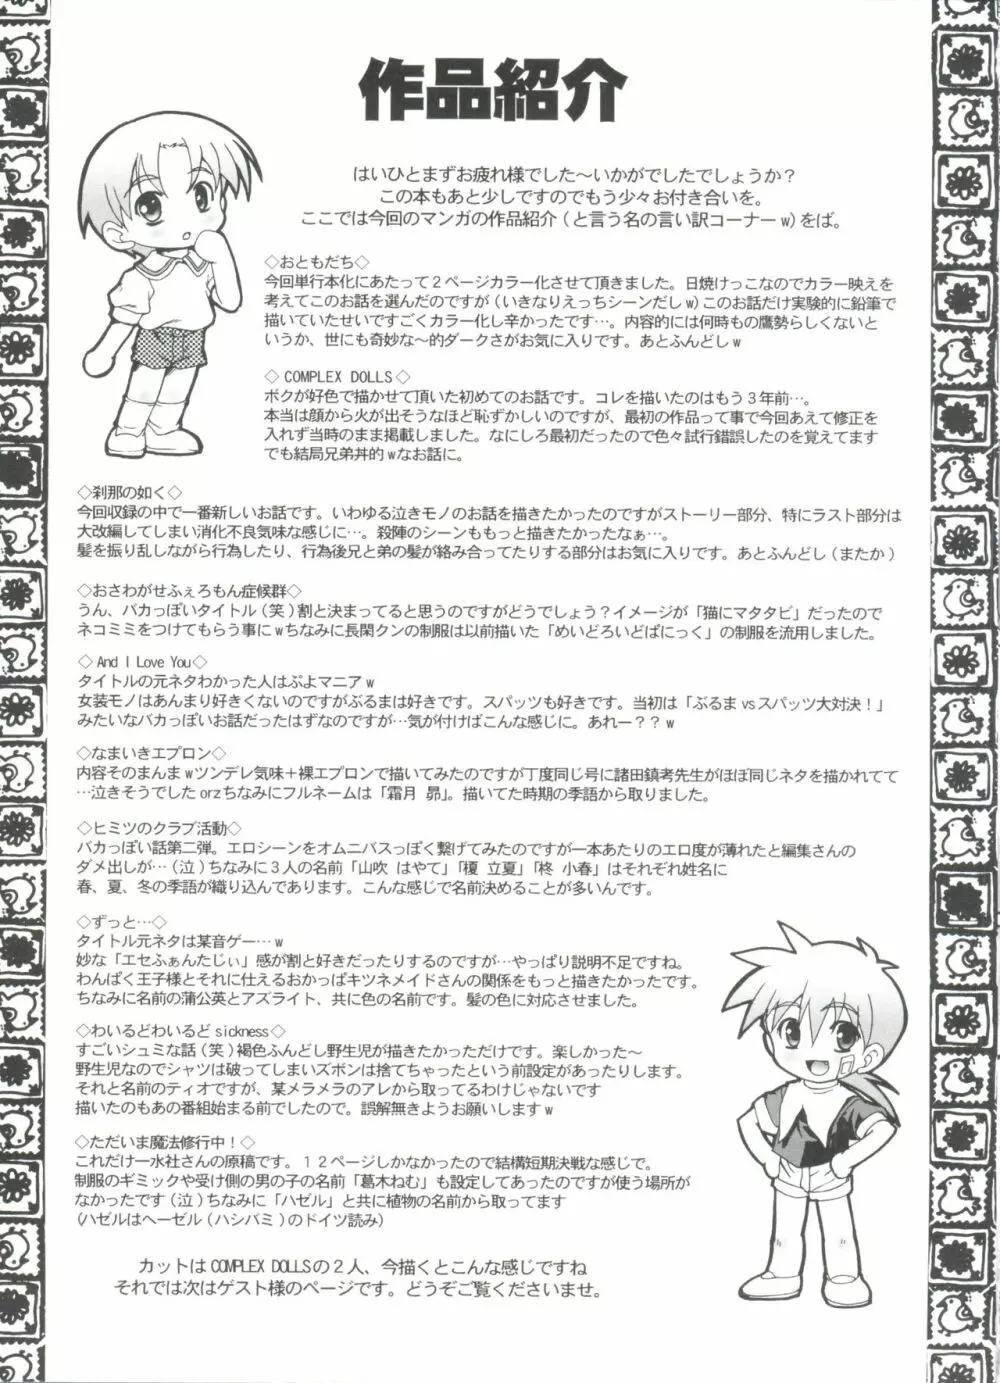 作品紹介
はいひとまずお疲れ様でした～いかがでしたでしょうか？
この本もあと少しですのでもう少々お付き合いを。
ここでは今回のマンガの作品紹介(と言う名の言い訳コーナーw)をば。
◇おともだち◇
今回単行本化にあたって２ページカラー化させて頂きました。日焼けっこなのでカラー映えを
考えてこのお話を選んだのですが(いきなりえっちシーンだしw)このお話だけ実験的に鉛筆で
描いていたせいですごくカラー化し辛かったです…。内容的には何時もの鷹勢らしくないと
いうか、世にも奇妙な～的ダークさがお気に入りです。あとふんどしw
◇COMPLEX DOLLS◇
ボクが好色で描かせて頂いた初めてのお話です。コレを描いたのはもう３年前…。
本当は顔から火が出そうなほど恥ずかしいのですが、最初の作品って事で今回あえて修正を
入れず当時のまま掲載しました。なにしろ最初だったので色々試行錯誤したのを覚えてます
でも結局兄弟丼的wなお話に。
◇刹那の如く◇
今回収録の中で一番新しいお話です。いわゆる泣きモノのお話を描きたかったのですがストーリー部分、特にラスト部分は
大改編してしまい消化不良気味な感じに…。殺陣のシーンももっと描きたかったなぁ…。
髪を振り乱しながら行為したり、行為後兄と弟の髪が絡み合ってたりする部分はお気に入りです。あとふんどし(またか)
◇おさわがせふぇろもん症候群◇
うん、バカっぽいタイトル(笑)割と決まってると思うのですがどうでしょう？イメージが「猫にマタタビ」だったので
ネコミミをつけてもらう事にwちなみに長閑クンの制服は以前描いた「めいどろいどぱにっく」の制服を流用しました。
◇And I Love You◇
タイトルの元ネタわかった人はぷよマニアw
女装モノはあんまり好きくないのですがぶるまは好きです。スパッツも好きです。当初は「ぶるまvsスパッツ大対決！」
みたいなバカっぽいお話だったはずなのですが…気が付けばこんな感じに。あれー？？w
◇なまいきエプロン◇
内容そのまんまwツンデレ気味＋裸エプロンで描いてみたのですが丁度同じ号に諸田鎮考先生がほぼ同じネタを描かれてて
…泣きそうでしたorzちなみにフルネームは「霜月 昴」。描いてた時期の季語から取りました。
◇ヒミツのクラブ活動◇
バカっぽい話第二弾。エロシーンをオムニバスっぽく繋げてみたのですが一本あたりのエロ度が薄れたと編集さんの
ダメ出しが…(泣)ちなみに３人の名前「山吹 はやて」「榎 立夏」「柊 小春」はそれぞれ姓名に
春、夏、冬の季語が織り込んであります。こんな感じで名前決めることが多いんです。
◇ずっと…◇
タイトル元ネタは某音ゲー…w
妙な「エセふぁんたじぃ」感が割と好きだったりするのですが…やっぱり説明不足ですね。
わんぱく王子様とそれに仕えるおかっぱキツネメイドさんの関係をもっと描きたかったです。
ちなみに名前の蒲公英とアズライト、共に色の名前です。髪の色に対応させました。
◇わいるどわいるどsickness◇
すごいシュミな話(笑)褐色ふんどし野生児が描きたかっただけです。楽しかった～
野生児なのでシャツは破ってしまいズボンは捨てちゃったという前設定があったりします。
それと名前のティオですが、某メラメラのアレから取ってるわけじゃないです
描いたのもあの番組始まる前でしたので。誤解無きようお願いしますw
◇ただいま魔法修行中！◇
これだけ一水社さんの原稿です。１２ページしかなかったので結構短期決戦な感じで。
制服のギミックや受け側の男の子の名前「葛木ねむ」も設定してあったのですが使う場所が
なかったです(泣)ちなみに「ハゼル」と共に植物の名前から取ってます
(ハゼルはヘーゼル(ハシバミ)のドイツ読み)
カットはCOMPLEX DOLLSの２人、今描くとこんな感じですね
それでは次はゲスト様のページです。どうぞご覧くださいませ。